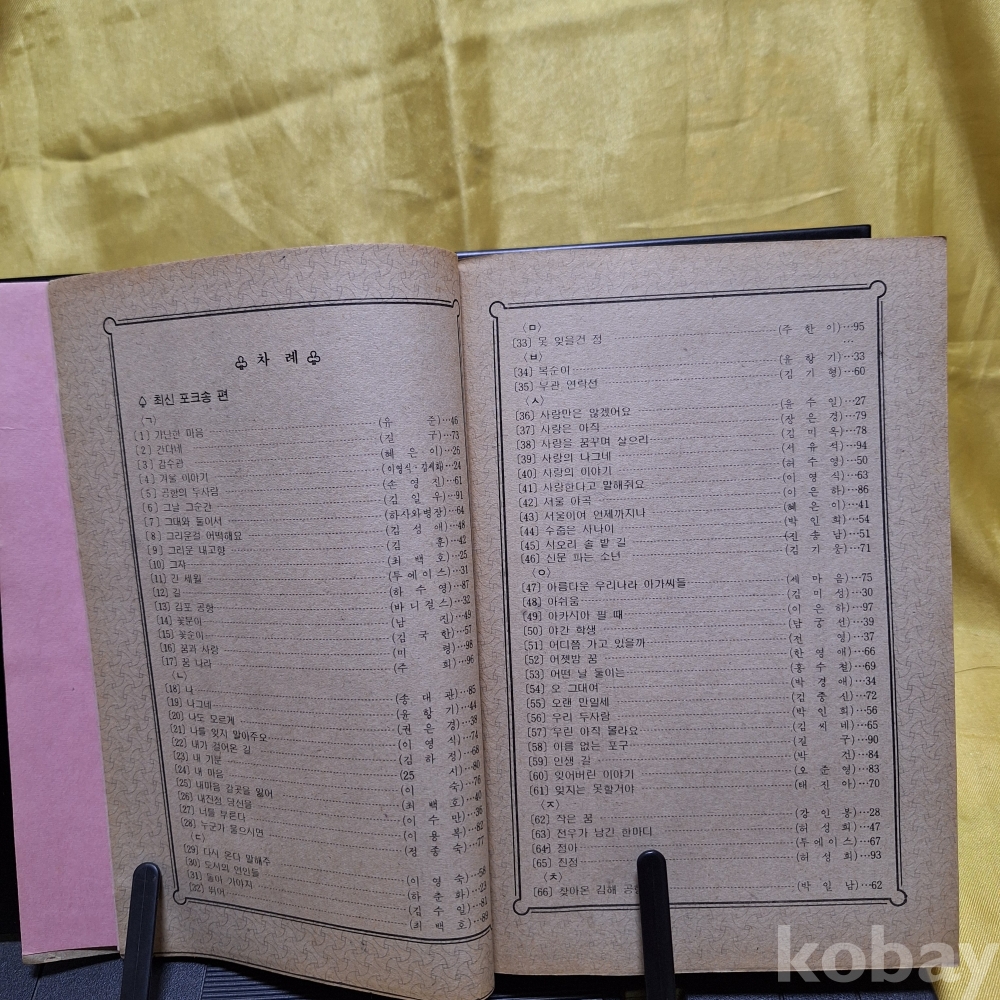 차 례
최신 포크송 편
〈ㄱ〉
[1] 가난한 마음 (유 준)…46
[2] 간다네 (길 구)…73
[3] 감수관 (혜 은 이)…26
[4] 겨울 이야기 (이영식·김세화)…24
[5] 공항의 두사람 (손 영 진)…61
[6] 그날 그순간 (김 일 우)…91
[7] 그대와 둘이서 (하사와병장)…64
[8] 그리운걸 어떡해요 (김 성 애)…48
[9] 그리운 내고향 (김 훈)…42
[10] 그자 (최 백 호)…25
[11] 긴 세월 (투에이스)…31
[12] 길 (하 수 영)…87
[13] 김포 공항 (바니걸스)…32
[14] 꽃분이 (남 진)…49
[15] 꽃순이 (김 국 환)…57
[16] 꿈과 사랑 (미 령)…98
[17] 꿈 나라 (주 희)…96
〈ㄴ〉
[18] 나 (송 대 관)…85
[19] 나그네 (윤 항 기)…44
[20] 나도 모르게 (권 은 경)…38
[21] 나를 잊지 말아주오 (이 영 식)…74
[22] 내가 걸어온 길 (김 하 정)…68
[23] 내 기분 (25 시)…80
[24] 내 마음 (이 숙)…76
[25] 내마음 갈곳을 잃어 (최 백 호)…40
[26] 내진정 당신을 (이 수 만)…36
[27] 너를 부른다 (이 용 복)…82
[28] 누군가 물으시면 (정 종 숙)…77
〈ㄷ〉
[29] 다시 온다 말해주 (이 영 숙)…58
[30] 도시의 연인들 (하 춘 화)…23
[31] 돌아 가야지 (김 수 일)…81
[32] 뛰어 (최 백 호)…89
〈ㅁ〉
[33] 못 잊을건 정 (주 한 이)…95
〈ㅂ〉
[34] 복순이 (윤 항 기)…33
[35] 부관 연락선 (김 기 형)…60
〈ㅅ〉
[36] 사랑만은 않겠어요 (윤 수 일)…27
[37] 사랑은 아직 (장 은 경)…79
[38] 사랑을 꿈꾸며 살으리 (김 미 옥)…78
[39] 사랑의 나그네 (서 유 석)…94
[40] 사랑의 이야기 (허 수 영)…50
[41] 사랑한다고 말해줘요 (이 영 식)…63
[42] 서울 야곡 (이 은 하)…86
[43] 서울이여 언제까지나 (혜 은 이)…41
[44] 수줍은 사나이 (박 인 희)…54
[45] 시오리 솔 밭 길 (진 송 남)…51
[46] 신문 파는 소년 (김 기 웅)…71
〈ㅇ〉
[47] 아름다운 우리나라 아가씨들 (세 마 음)…75
[48] 아쉬움 (김 미 성)…30
[49] 아카시아 필 때 (이 은 하)…97
[50] 야간 학생 (남 궁 선)…39
[51] 어디쯤 가고 있을까 (전 영)…37
[52] 어젯밤 꿈 (한 영 애)…66
[53] 어떤 날 둘이는 (홍 수 철)…69
[54] 오 그대여 (박 경 애)…34
[55] 오랜 만일세 (김 중 신)…72
[56] 우리 두사람 (박 인 희)…56
[57] 우린 아직 몰라요 (김 씨 네)…65
[58] 이름 없는 포구 (길 구)…90
[59] 인생 길 (박 건)…84
[60] 잊어버린 이야기 (오 준 영)…83
[61] 잊지는 못할거야 (태 진 아)…70
〈ㅈ〉
[62] 작은 꿈 (강 인 봉)…28
[63] 전우가 남긴 한마디 (허 성 희)…47
[64] 점아 (투에이스)…67
[65] 진정 (허 성 희)…93
〈ㅊ〉
[66] 찾아온 김해 공 (박 일 남)…62
kobay